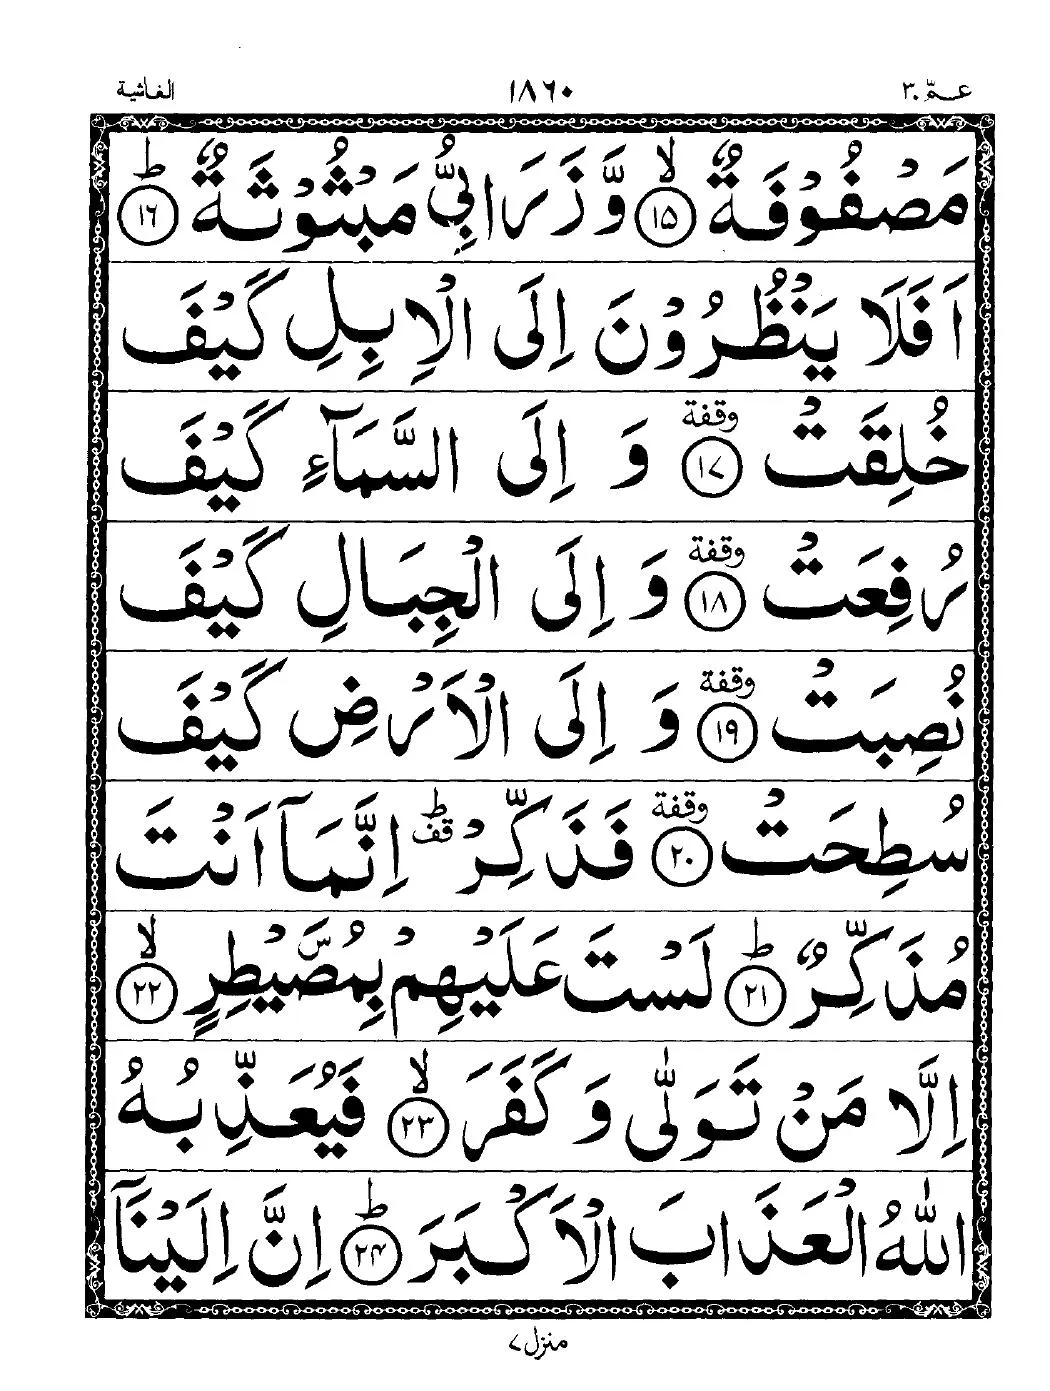 عـمّ ٣٠ ١٨٦٠ الغاشية
مَصْفُوْفَةٌ ۙ‏ ﴿۱۵﴾ وَّ زَرَابِىُّ مَبْثُوْثَةٌ ؕ‏ ﴿۱۶﴾
اَفَلَا يَنْظُرُوْنَ اِلَى الْاِبِلِ كَيْفَ
خُلِقَتْ وقفة ﴿۱۷﴾ وَ اِلَى السَّمَآءِ كَيْفَ
رُفِعَتْ وقفة ﴿۱۸﴾ وَ اِلَى الْجِبَالِ كَيْفَ
نُصِبَتْ وقفة ﴿۱۹﴾ وَ اِلَى الْاَرْضِ كَيْفَ
سُطِحَتْ وقفة ﴿۲۰﴾ فَذَكِّرْ ؕ قف اِنَّمَاۤ اَنْتَ
مُذَكِّرٌ ؕ‏ ﴿۲۱﴾ لَسْتَ عَلَيْهِمْ بِمُصَۜيْطِرٍۙ‏ ﴿۲۲﴾
اِلَّا مَنْ تَوَلّٰى وَ كَفَرَ ۙ‏ ﴿۲۳﴾ فَيُعَذِّبُهُ
اللّٰهُ الْعَذَابَ الْاَكْبَرَ ؕ‏ ﴿۲۴﴾ اِنَّ اِلَيْنَاۤ
منزل ٧